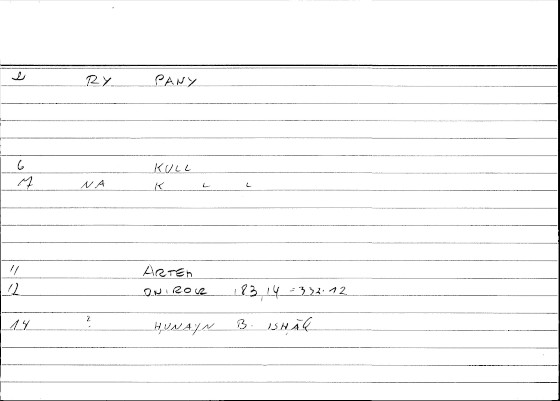 2 RY PANY
6 KULL
17 NA K L L
11 ARTEM
12 ONIROCR 183,14 = 332.12
14 ? ḤUNAYN B. ISḤĀQ